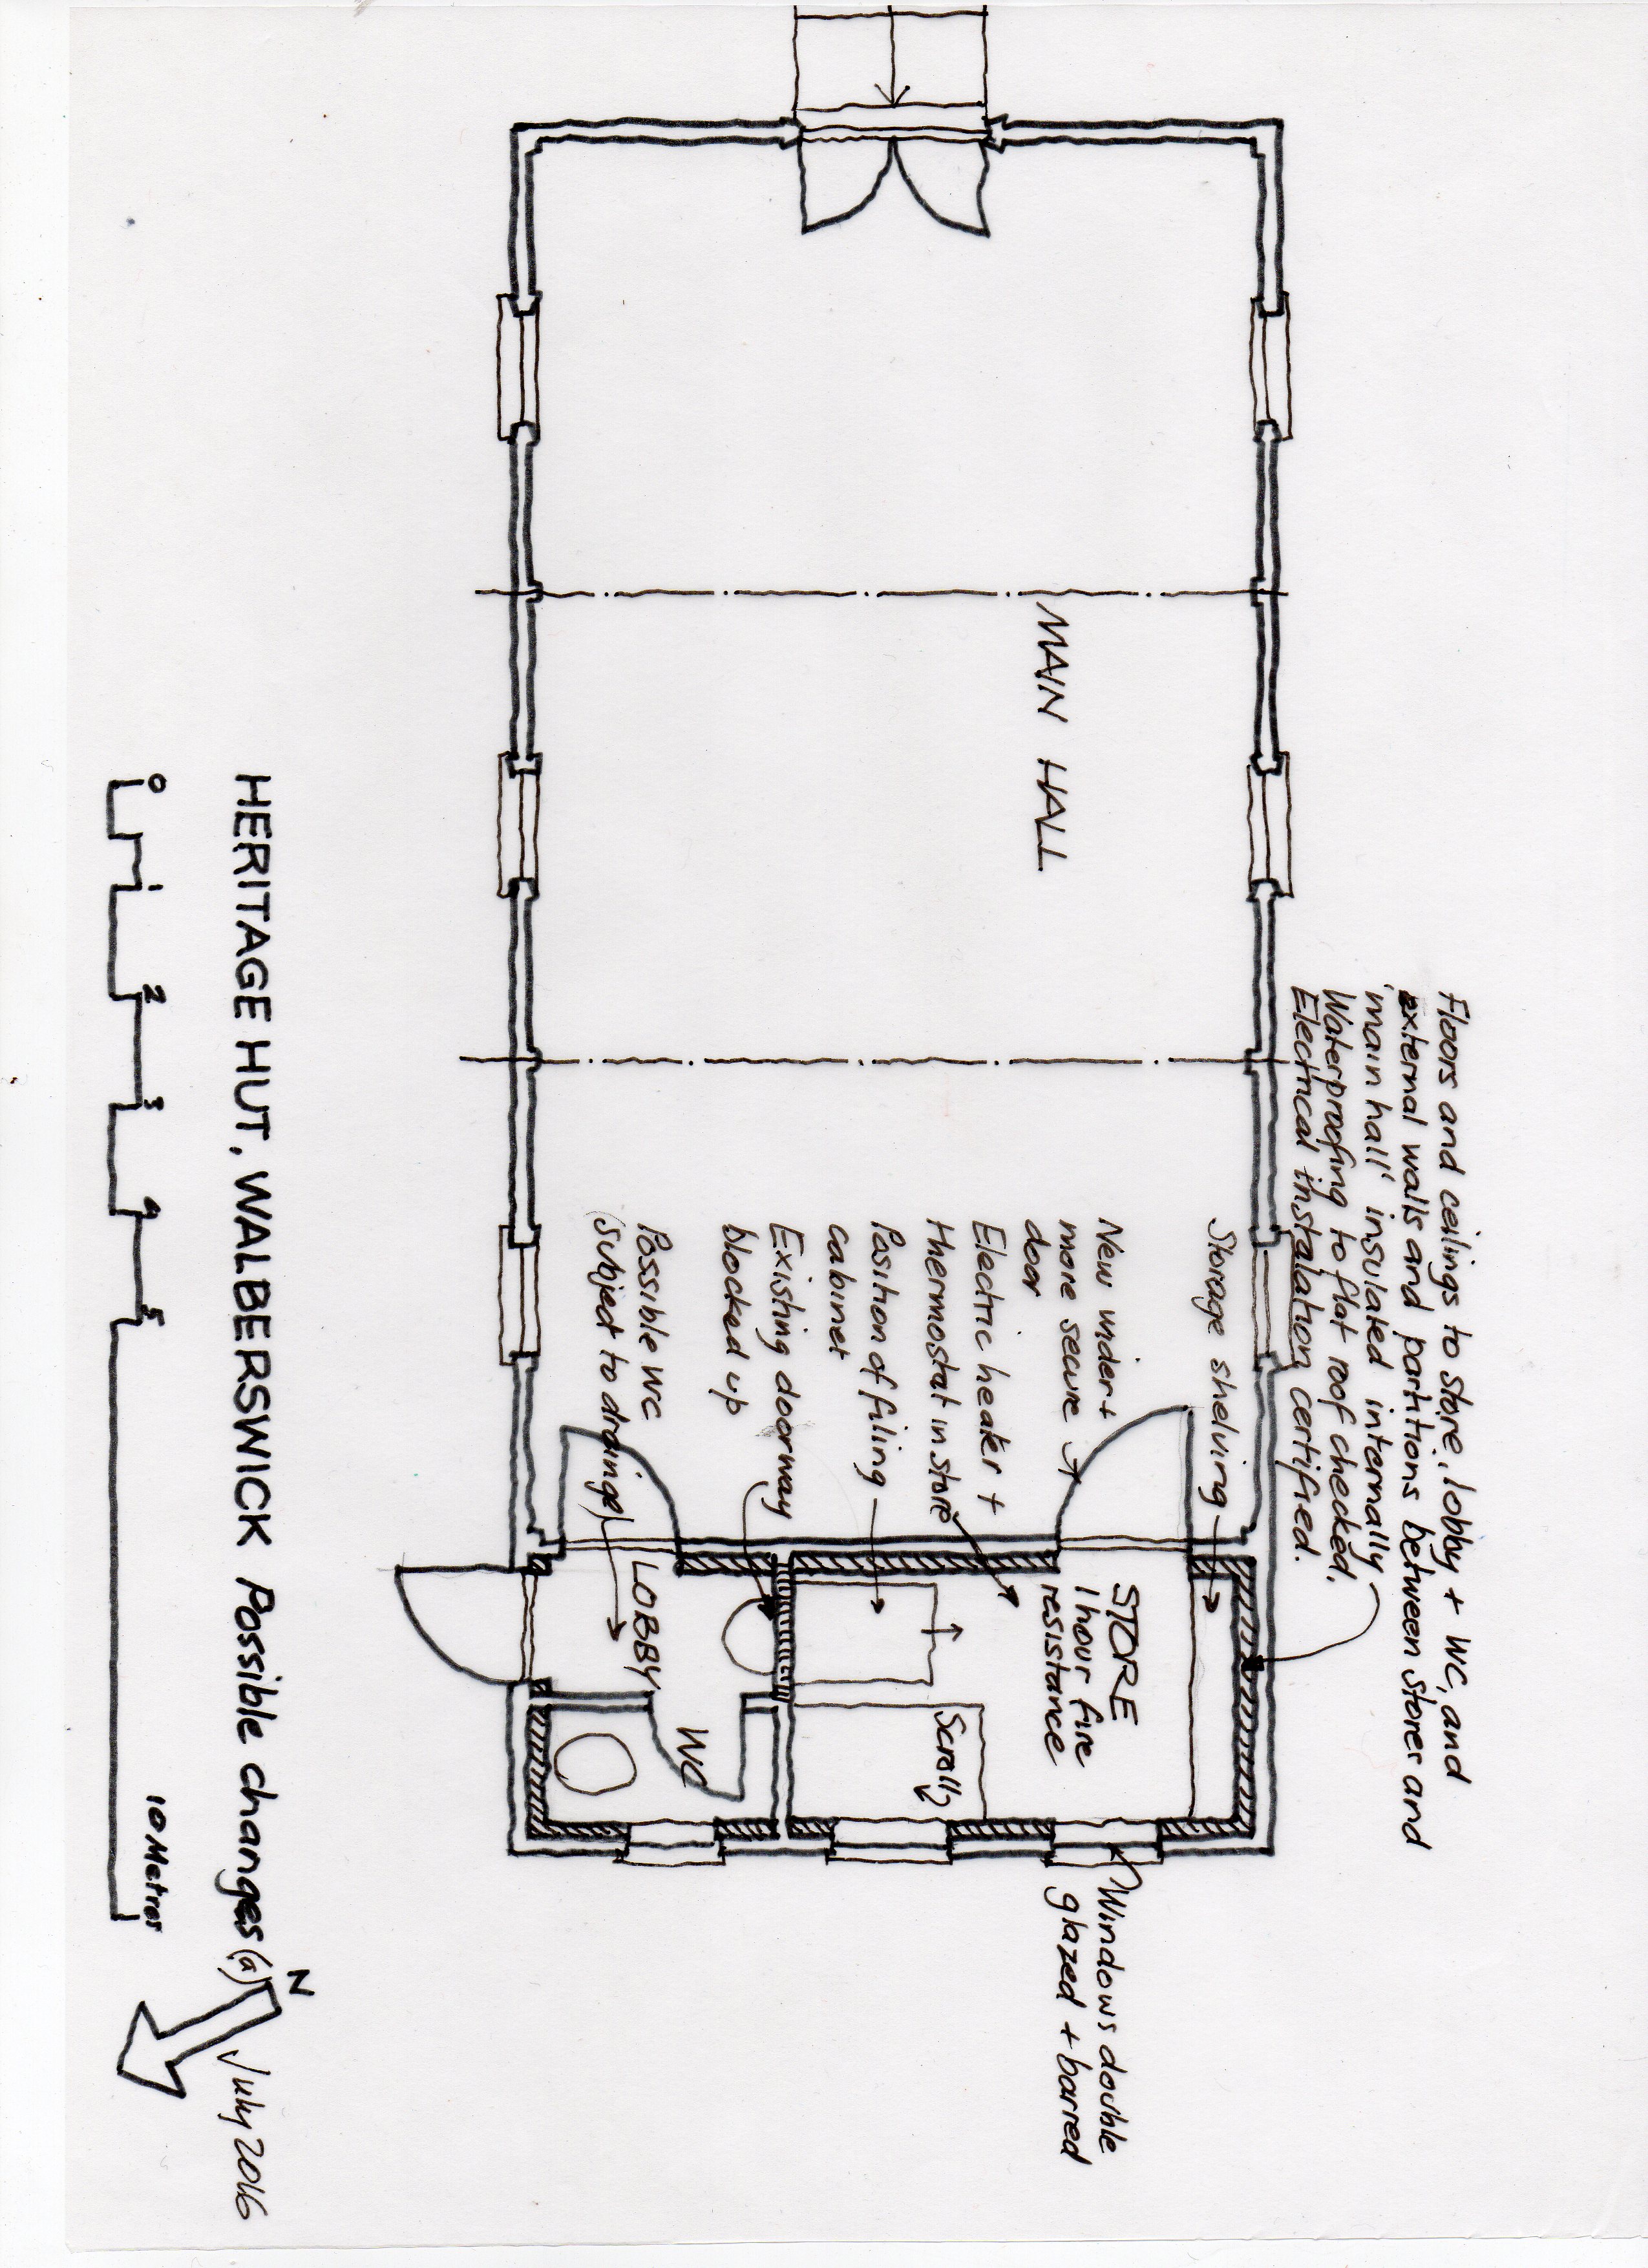 Floors and ceilings to store, lobby + WC, and
external walls and partitions between stores and
'main hall' insulated internally
Waterproofing to flat roof checked.
Electrical installation certified.
Storage shelving
New wider +
more secure
door
Electric heater +
thermostat in store
Position of filing
cabinet
Existing doorway
blocked up
Possible WC
(subject to drainge)
MAIN HALL
STORE
1 hour fire
resistance
Scrolls
LOBBY
WC
Windows double
glazed + barred
HERITAGE HUT, WALBERSWICK Possible changes (a) July 2016
N
0 1 2 3 4 5 10 Metres